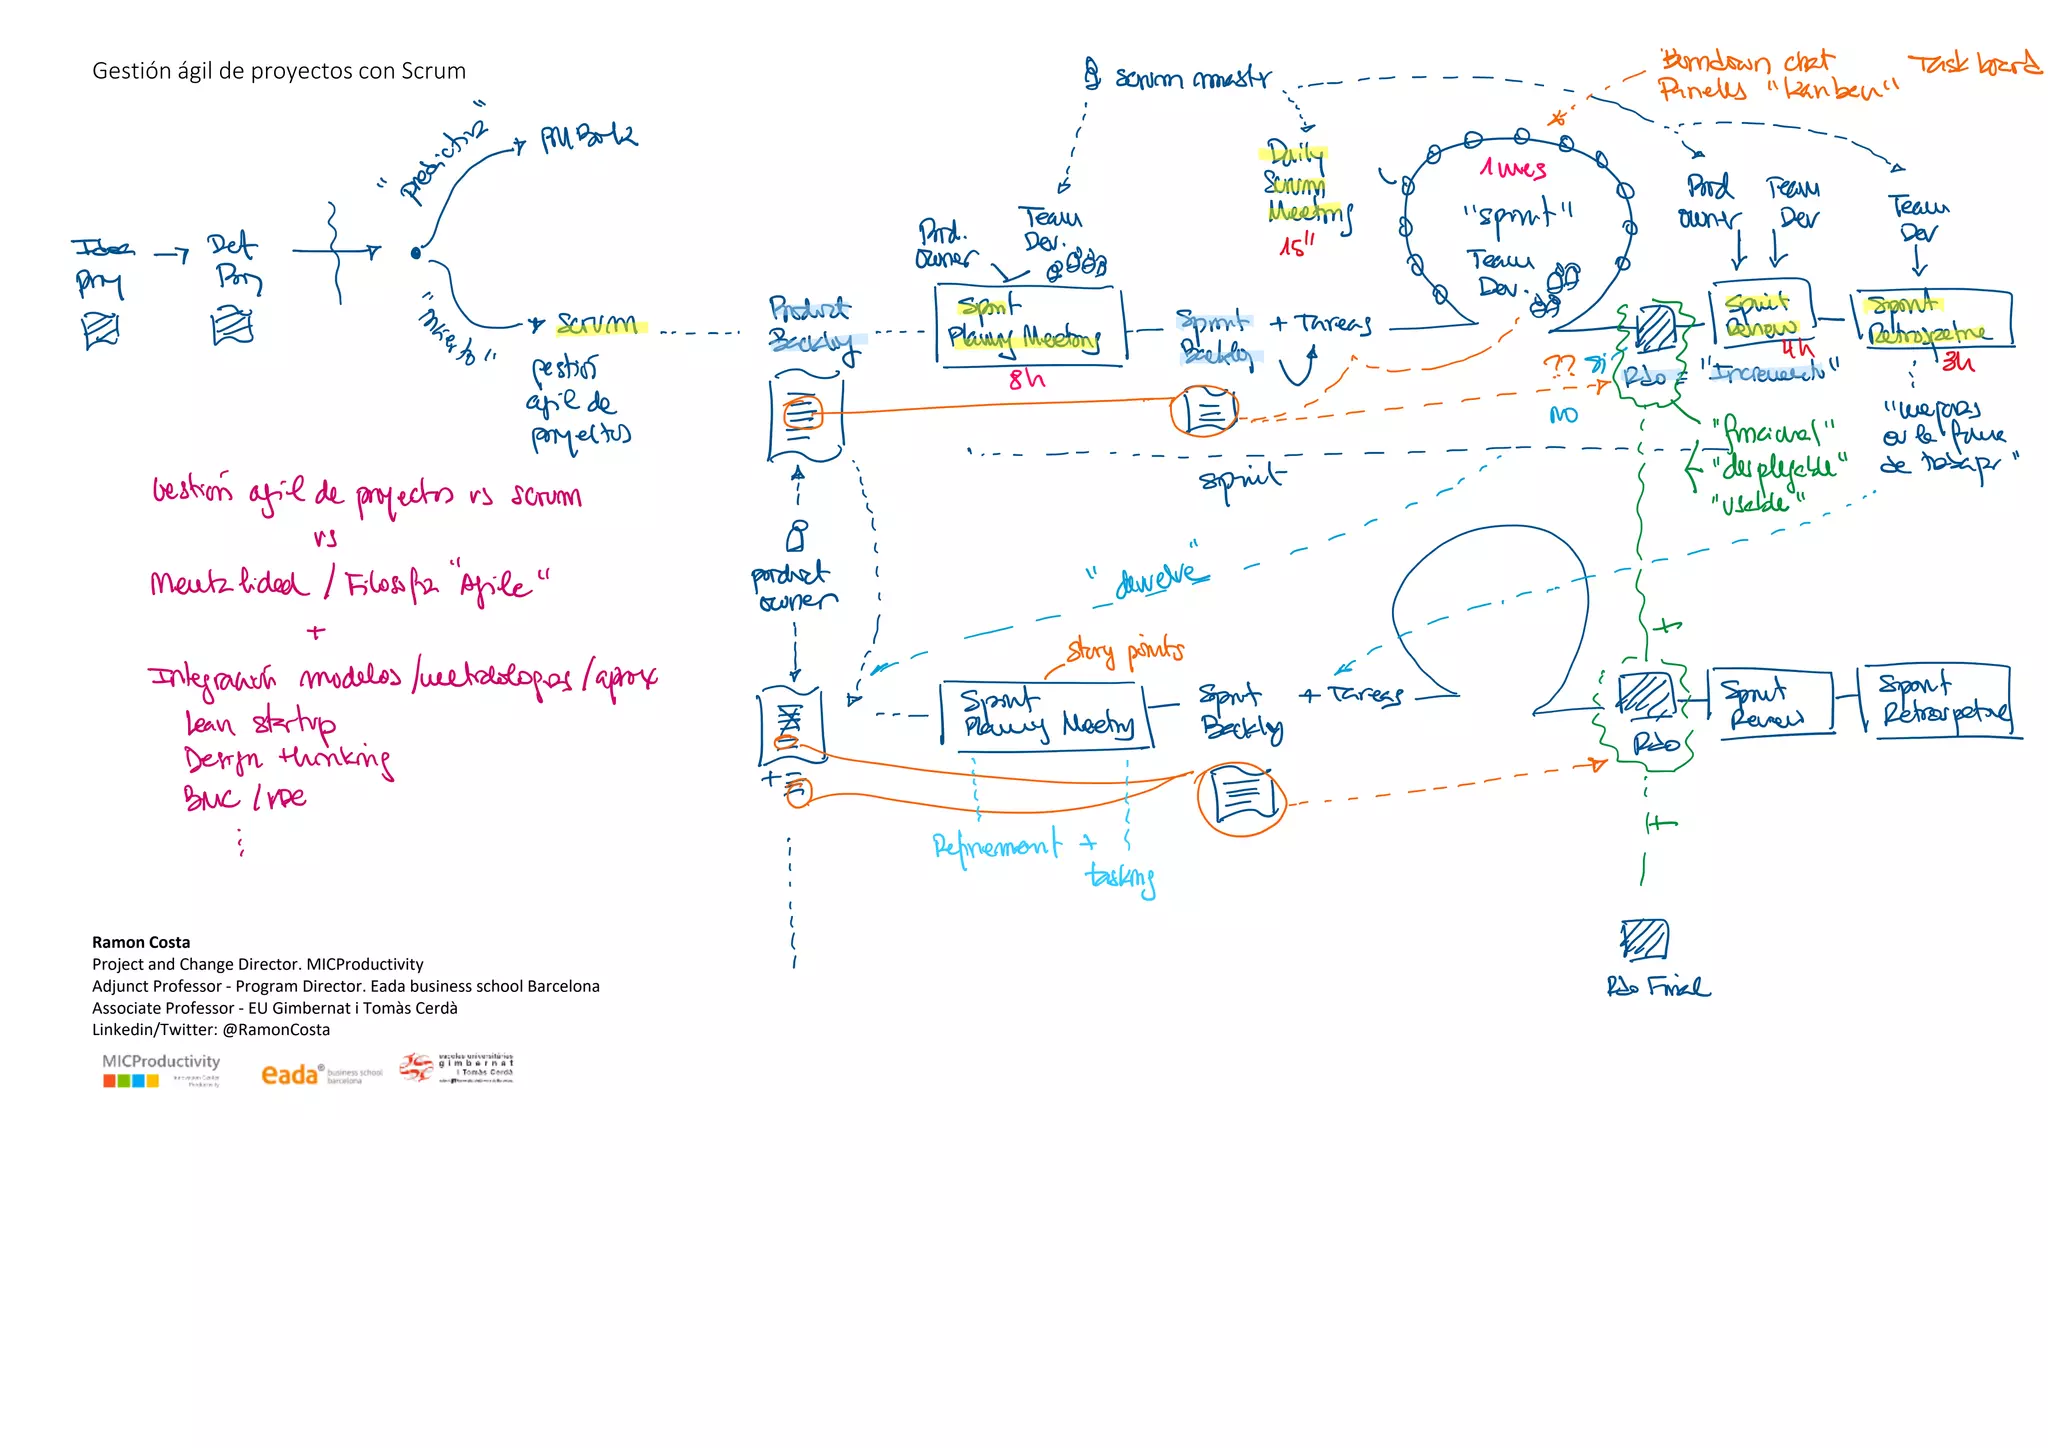 Gestión ágil de proyectos con Scrum
"predictiva"
PMBok
Idea
Proy
Def
Proy
"incierto"
Scrum
gestión
agil de
proyectos
scrum master
Burndown chat
Paneles "kanban"
Task board
Prod.
owner
Team
Dev.
Daily
Scrum
Meeting
15"
1 mes
"sprint"
Team
Dev.
Prod
owner
Team
Dev
Team
Dev
Product
Backlog
Sprint
Planning Meeting
8h
Sprint
Backlog
+ Tareas
Sprint
Review
4h
Sprint
Retrospective
3h
?? si
NO
Rdo = "Incremento"
"funcional"
"desplegable"
"usable"
"mejoras
en la forma
de trabajar"
sprint
Gestión agil de proyectos vs scrum
vs
Mentalidad / Filosofia "Agile"
+
Integración modelos /metodologias /aprox
Lean startup
Design thinking
BMC /
product
owner
"devuelve"
story points
Sprint
Planning Meeting
Sprint
Backlog
+ Tareas
Rdo
Sprint
Review
Sprint
Retrospective
+
+
+
Refinement +
tasking
Rdo Final
Ramon Costa
Project and Change Director. MICProductivity
Adjunct Professor - Program Director. Eada business school Barcelona
Associate Professor - EU Gimbernat i Tomàs Cerdà
Linkedin/Twitter: @RamonCosta
MICProductivity
eada business school
barcelona
escoles universitàries
gimbernat
i Tomàs Cerdà